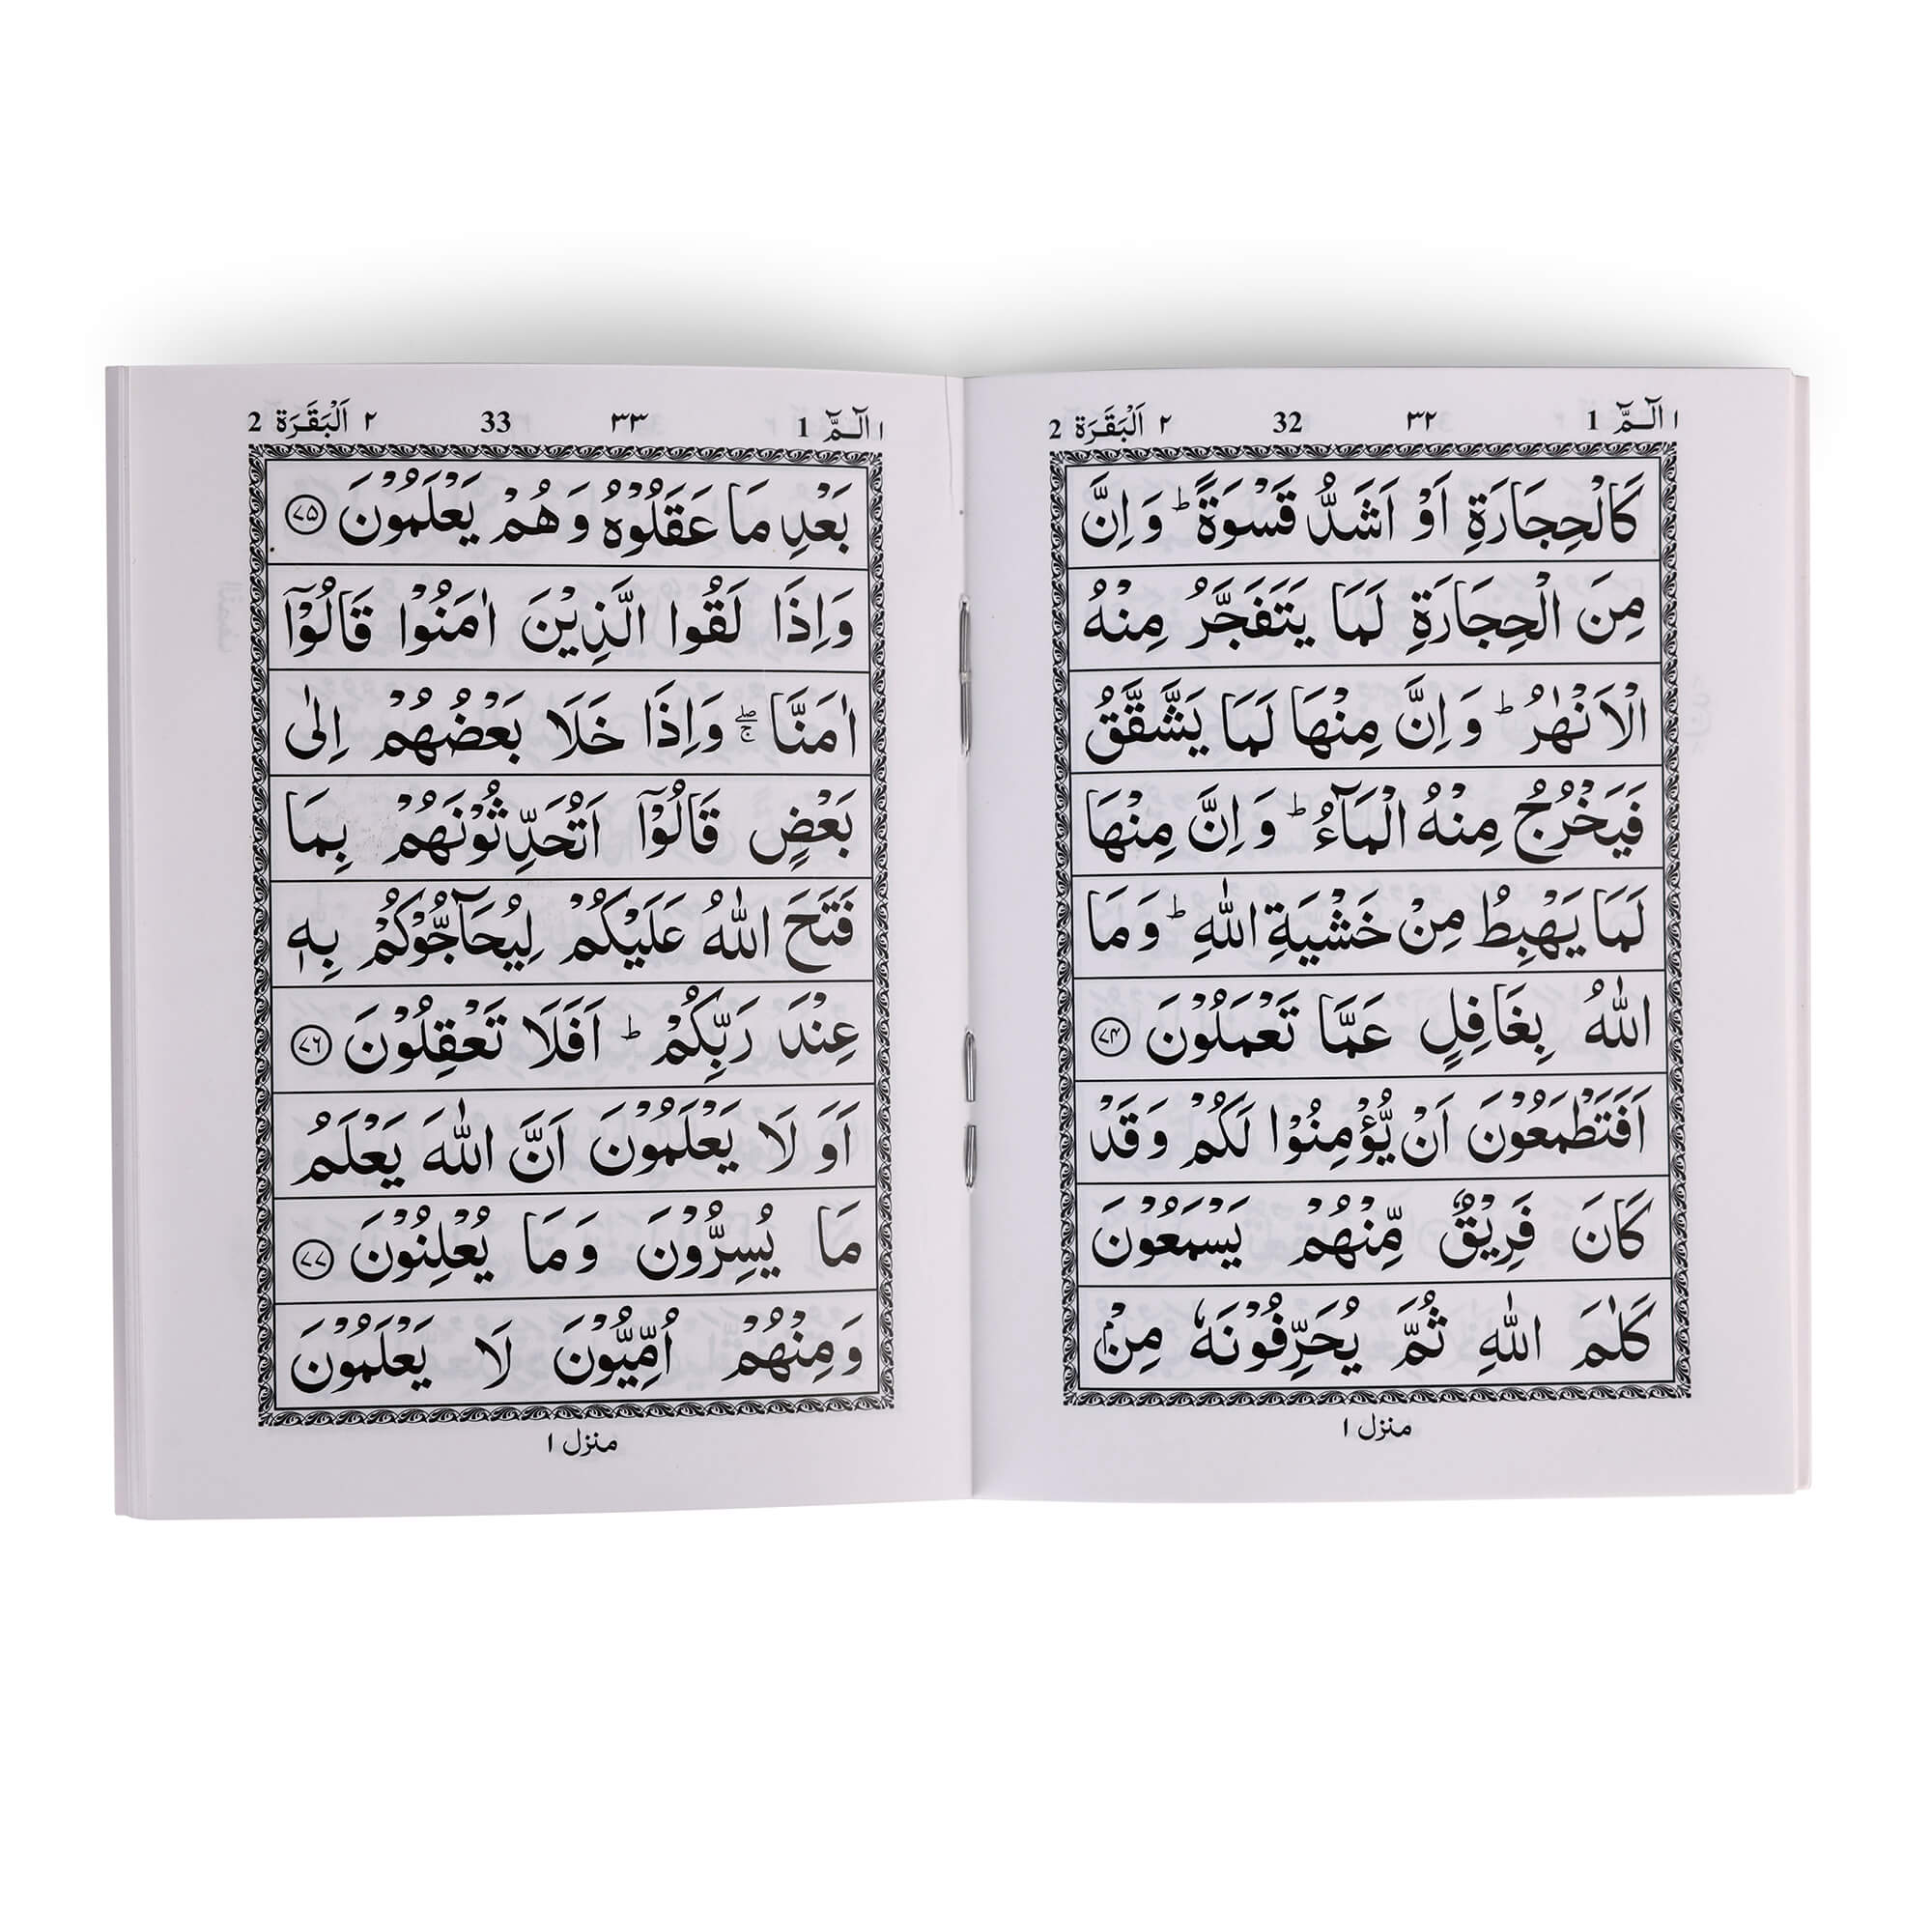 ١ الٓـمّٓ 1 ٣٢ 32 ٢ اَلْبَقَرَة 2
كَالْحِجَارَةِ اَوْ اَشَدُّ قَسْوَةً ؕ وَ اِنَّ
مِنَ الْحِجَارَةِ لَمَا يَتَفَجَّرُ مِنْهُ
الْاَنْهٰرُ ؕ وَ اِنَّ مِنْهَا لَمَا يَشَّقَّقُ
فَيَخْرُجُ مِنْهُ الْمَآءُ ؕ وَ اِنَّ مِنْهَا
لَمَا يَهْبِطُ مِنْ خَشْيَةِ اللّٰهِ ؕ وَ مَا
اللّٰهُ بِغَافِلٍ عَمَّا تَعْمَلُوْنَ ﴿۷۴﴾
اَفَتَطْمَعُوْنَ اَنْ يُّؤْمِنُوْا لَكُمْ وَ قَدْ
كَانَ فَرِيْقٌ مِّنْهُمْ يَسْمَعُوْنَ
كَلٰمَ اللّٰهِ ثُمَّ يُحَرِّفُوْنَهٗ مِنْۢ
منزل ١
١ الٓـمّٓ 1 ٣٣ 33 ٢ اَلْبَقَرَة 2
بَعْدِ مَا عَقَلُوْهُ وَ هُمْ يَعْلَمُوْنَ ﴿۷۵﴾
وَ اِذَا لَقُوا الَّذِيْنَ اٰمَنُوْا قَالُوْۤا
اٰمَنَّا ۚۖ وَ اِذَا خَلَا بَعْضُهُمْ اِلٰى
بَعْضٍ قَالُوْۤا اَتُحَدِّثُوْنَهُمْ بِمَا
فَتَحَ اللّٰهُ عَلَيْكُمْ لِيُحَآجُّوْكُمْ بِهٖ
عِنْدَ رَبِّكُمْ ؕ اَفَلَا تَعْقِلُوْنَ ﴿۷۶﴾
اَوَ لَا يَعْلَمُوْنَ اَنَّ اللّٰهَ يَعْلَمُ
مَا يُسِرُّوْنَ وَ مَا يُعْلِنُوْنَ ﴿۷۷﴾
وَ مِنْهُمْ اُمِّيُّوْنَ لَا يَعْلَمُوْنَ
منزل ١